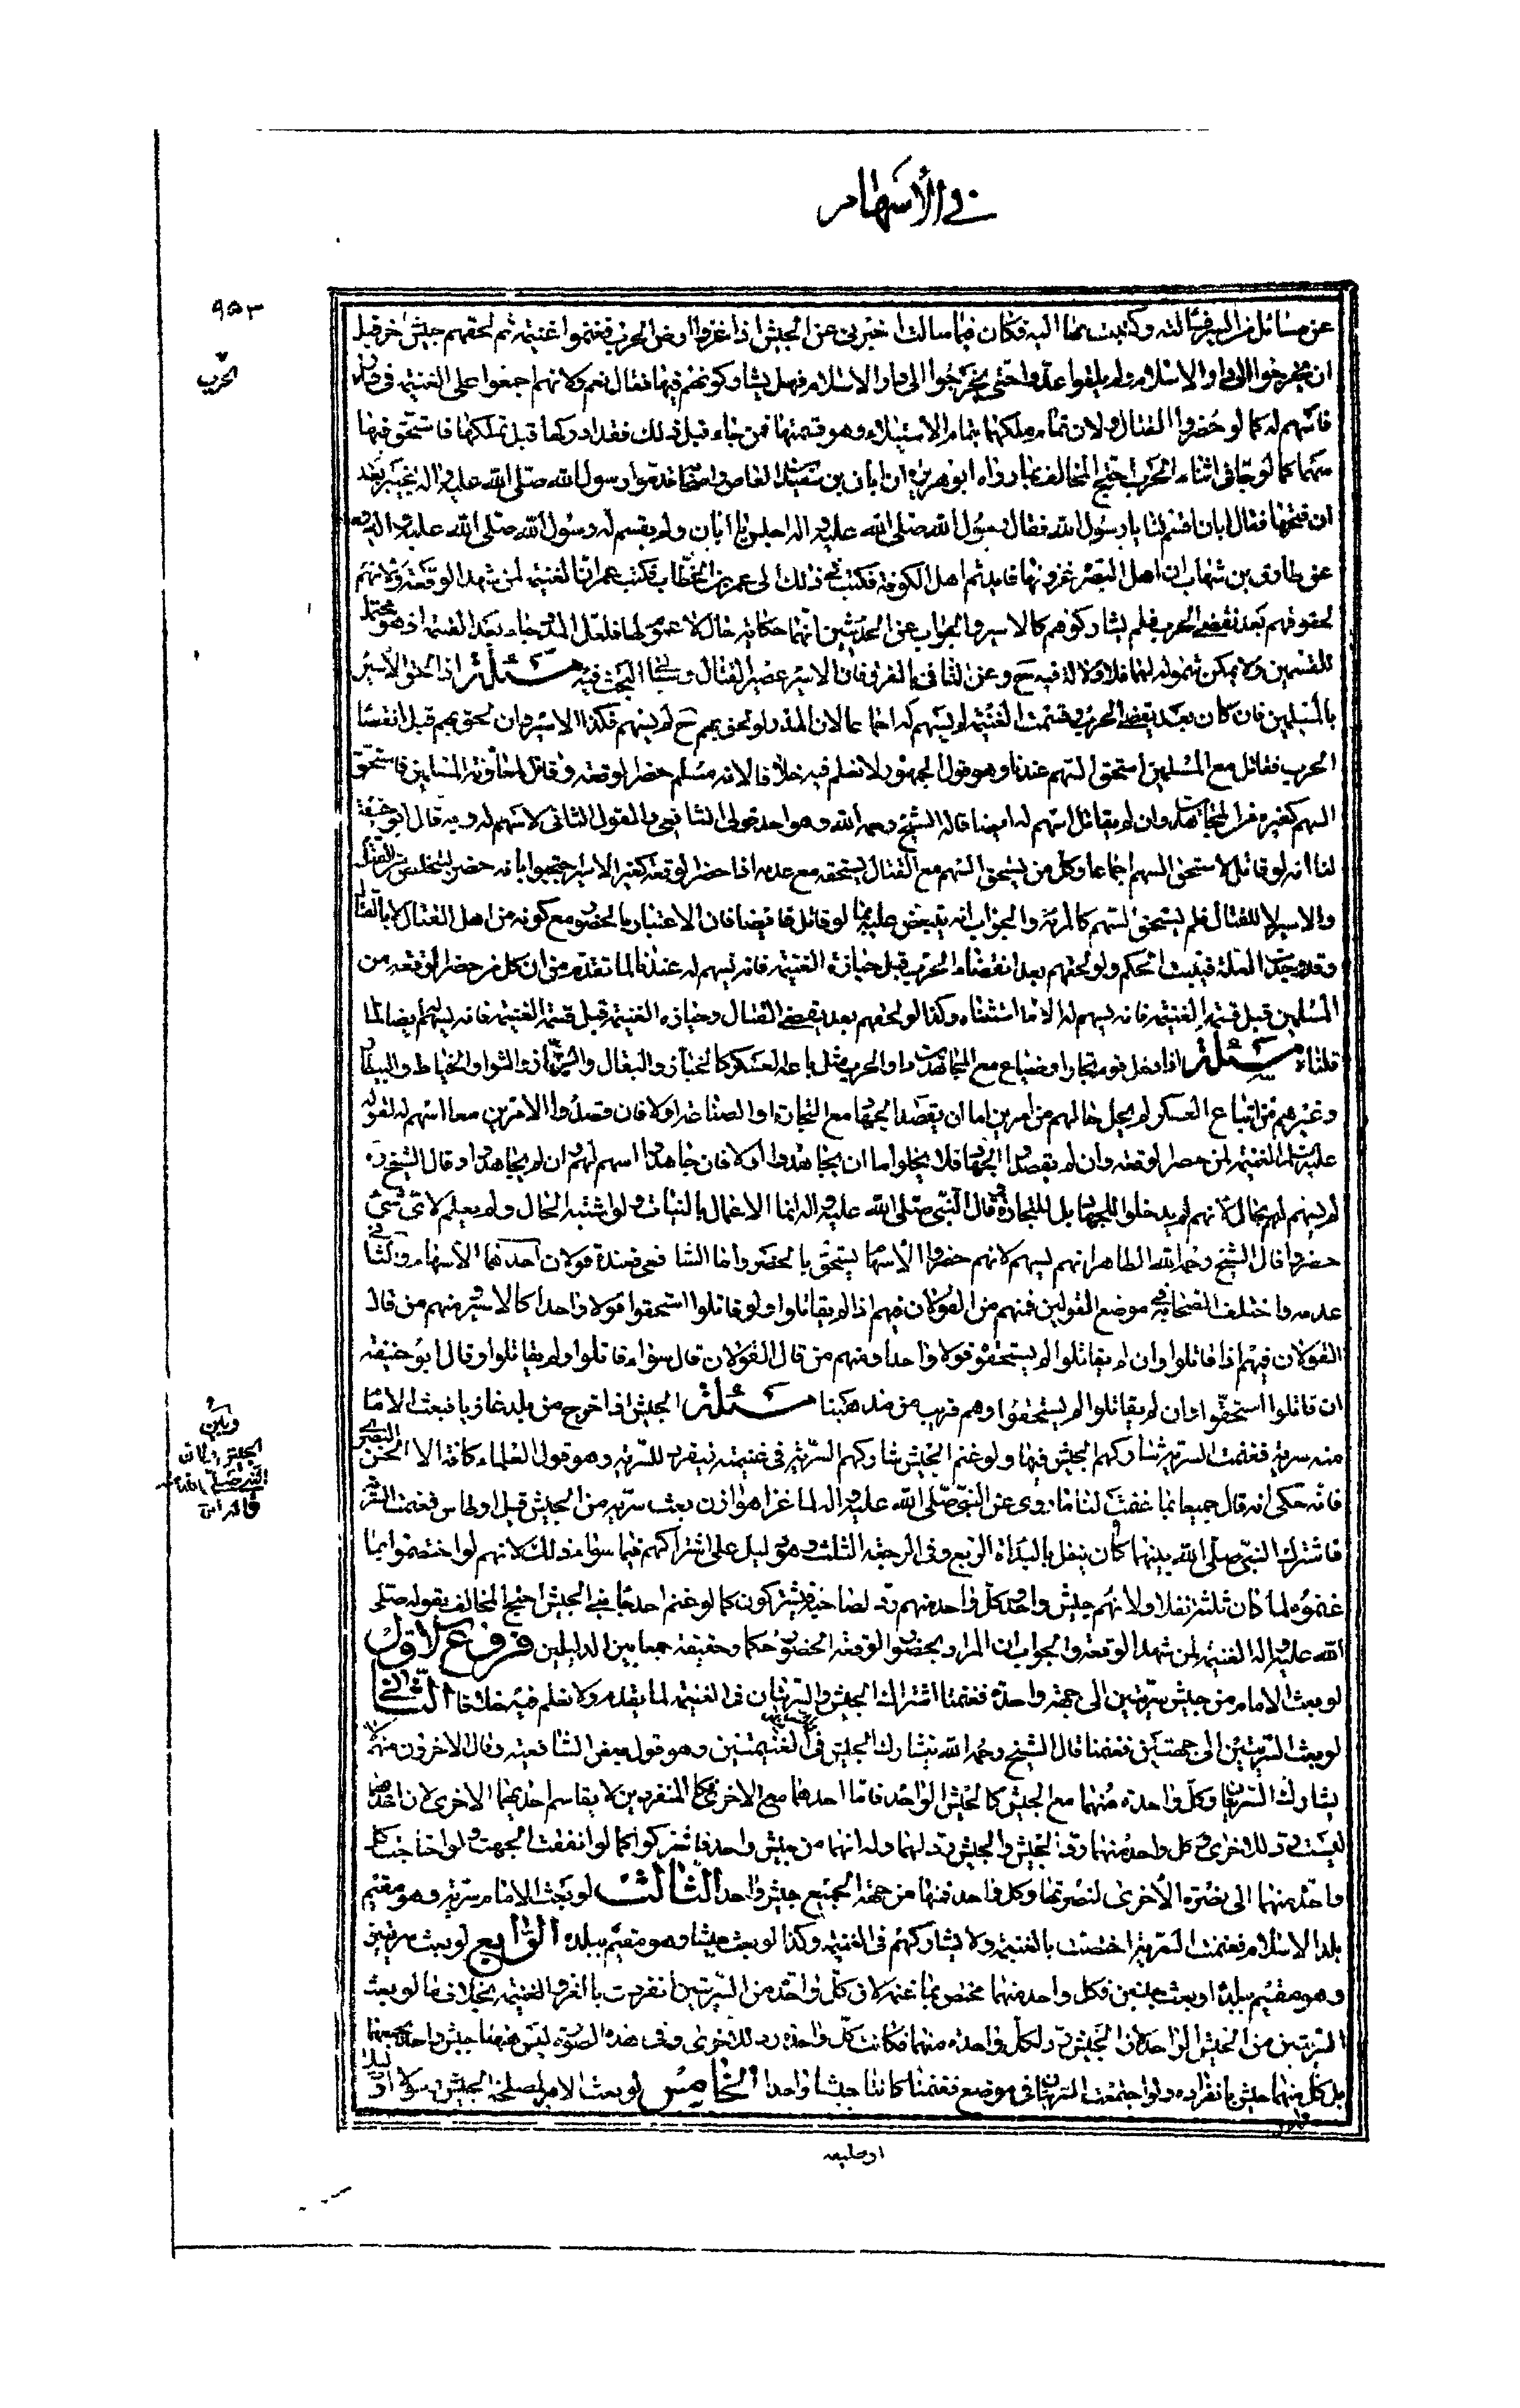 في الأسهام
٩٥٣
الحرب
عن مسائل من السير فسالته وكتبت بها اليه فكان فيما سالت اخبرني عن الجيش اذا غزوا ارض الحرب فغنموا غنيمة ثم لحقهم جيش اخر قبل
ان يخرجوا الى دار الاسلام ولم يلقوا عدوا حتى يخرجوا الى دار الاسلام فهل يشاركونهم فيها فقال نعم ولانهم اجمعوا على الغنيمة في
فاسهم له كما لو حضروا القتال ولان تمام ملكها بتمام الاستيلاء وهو قسمتها فمن جاء قبل ذلك فقد ادركها قبل تملكها فاستحق فيها
سهما كما لو جاء في اثناء الحرب احتج المخالف بما رواه ابو هريرة ان ابان بن سعيد بن العاص واصحابه قدموا رسول الله صلى الله عليه واله بخيبر بعد
ان فتحها فقال ابان اقسم لنا يا رسول الله فقال رسول الله صلى الله عليه واله اجلس يا ابان ولم يقسم له رسول الله صلى الله عليه واله
عن طارق بن شهاب ان اهل البصرة غزوا نهاوند فامدهم اهل الكوفة فكتب في ذلك الى عمر بن الخطاب فكتب عمر ان الغنيمة لمن شهد الوقعة ولانهم
لحقوهم بعد تقضي الحرب فلم يشاركوهم كالاسير والجواب عن الحديثين انهما حكاية حال لا عموم لها فلعل المدد جاء بعد القسمة اذ هو محتمل
للقسمين ولا يمكن شموله لهما فلا دلالة فيه ح وعن الثاني بالفرق فان الاسير عضير القتال وسياتي البحث فيه مسئلة اذا لحق الاسير
بالمسلمين فان كان بعد تقضي الحرب وقسمت الغنيمة لم يسهم له اجماعا لان المدد لو لحق بهم ح لم يسهم فكذا الاسير وان لحق بهم قبل انقضاء
الحرب فقاتل مع المسلمين استحق السهم عندنا وهو قول الجمهور لا نعلم فيه خلافا لانه مسلم حضر الوقعة وقاتل لمعاونة المسلمين فاستحق
السهم كغيره من المجاهدين وان لم يقاتل اسهم له ايضا قاله الشيخ رحمه الله وهو احد قولي الشافعي والقول الثاني لا سهم له وبه قال ابو حنيفة
لنا انه لو قاتل لاستحق السهم اجماعا وكل من يستحق السهم مع القتال يستحقه مع عدمه اذا حضر الوقعة كغير الاسير احتجوا بانه حضر ليتخلص من القتل
والاسر لا للقتال فلم يستحق السهم كالمراة والجواب انه ينتقض عليه بما لو قاتل فايضا فان الاعتبار بالحضور مع كونه من اهل القتال لا بالقتال
وقد وجدت العلة فيثبت الحكم ولو لحقهم بعد انقضاء الحرب قبل حيازة الغنيمة فانه يسهم له عندنا لما تقدم من ان كل من حضر الوقعة من
المسلمين قبل قسمة الغنيمة فانه يسهم له الا ما استثناه وكذا لو لحقهم بعد تقضي القتال وحيازة الغنيمة قبل قسمة الغنيمة فانه يسهم ايضا لما
قلناه مسئلة اذا دخل قوم تجارا وصناع مع المجاهدين دار الحرب مثل باعة العسكر كالخباز والبقال والبزاز والشواء والخياط والبيطار
وغيرهم من اتباع العسكر لم يخل حالهم من امرين اما ان يقصدوا الجهاد مع التجارة او الصناعة او لا فان قصدوا الامرين معا اسهم له لقوله
عليه السلام الغنيمة لمن حضر الوقعة وان لم يقصدوا الجهاد فلا يخلوا اما ان يجاهدوا اولا فان جاهدوا اسهم لهم وان لم يجاهدوا قال الشيخ ره
لم يسهم لهم بحال لانهم لم يدخلوا للجهاد بل للتجارة وقد قال النبي صلى الله عليه واله انما الاعمال بالنيات ولو اشتبه الحال ولم يعلم لاي شيء
حضروا قال الشيخ رحمه الله الظاهر انهم يسهم لانهم حضروا والاسهام يستحق بالحضور واما الشافعي فعنده قولان احدهما الاسهام والثاني
عدمه واختلف اصحابه في موضع القولين فمنهم من القولان فيهم اذا لم يقاتلوا ولو قاتلوا استحقوا قولا واحدا كالاسير ومنهم من قال
القولان فيهم اذا قاتلوا وان لم يقاتلوا لم يستحقوا قولا واحدا ومنهم من قال القولان قال سواء قاتلوا ولم يقاتلوا وقال ابو حنيفة
ان قاتلوا استحقوا وان لم يقاتلوا لم يستحقوا وهم قريب من مذهبنا مسئلة الجيش اذا خرج من بلد غازيا فبعث الامام
منه سرية فغنمت السرية شاركهم الجيش فيها ولو غنم الجيش شاركهم السرية في غنيمته تنفرد للسرية وهو قول العلماء كافة الا الحسن البصري
فانه حكى انه قال جميعا بما غنمت لنا ما روى عن النبي صلى الله عليه واله لما غزا هوازن بعث سرية من الجيش قبل اوطاس فغنمت السرية
فاشرك النبي صلى الله بينهما وكان ينفل بالبداة الربع وفي الرجعة الثلث وهو دليل على اشتراكهم فيما سواء ذلك لانهم لو اختصوا بما
غنموه لما كان ثلثه نفلا ولانهم جيش واحد وكل واحد منهم ردء لصاحبه فيشتركون كما لو غنم احد جانبي الجيش احتج المخالف بقوله صلى
الله عليه واله الغنيمة لمن شهد الوقعة والجواب ان المراد بحضور الوقعة الحضور حكما وحقيقة جمعا بين الدليلين فروع الاول
لو بعث الامام من جيش سريتين الى جهة واحدة فغنمتا اشترك الجيش والسريتان في الغنيمة لما تقدم ولا نعلم فيه خلافا الثاني
لو بعث السريتين الى جهتين فغنمتا قال الشيخ رحمه الله يتشارك الجيش في الغنيمتين وهو قول بعض الشافعية وقال الاخرون منهم لا
يشارك السريتان وكل واحدة منهما مع الجيش كالجيش الواحد فاما احدهما مع الاخرى فكالمنفردين لا يقاسم احدهما الاخرى لان احدهما
ليست ردء للاخرى وكل واحد منهما ردء الجيش والجيش ردء لهما ولانهما من جيش واحد فاشتركوا كما لو اتفقت الجهة ولو احتاجت كل
واحد منهما الى نصرة الاخرى لنصرتها وكل واحد منها من جهة الجميع جيش واحد الثالث لو بعث الامام سرية وهو مقيم
بلد الاسلام فغنمت السرية اختصت بالغنيمة ولا يشاركهم في الغنيمة وكذا لو بعث جيشا وهو مقيم ببلده الرابع لو بعث سريتين
وهو مقيم ببلده او بعث جيشين فكل واحد منهما مختص بما غنمه لان كل واحد من السريتين انفردت بالغزو والغنيمة بخلاف ما لو بعث
السريتين من الجيش الواحد لان الجيش ردء لكل واحدة منهما فكانت كل واحدة ردء للاخرى وفي هذه الصورة ليس هيهنا جيش واحد يجمعهما
بل كل منهما جيش بانفراده ولو اجتمعت السريتان في موضع فغنمتا كانتا جيشا واحدا الخامس لو بعث الامير لمصلحة الجيش رسولا او دليلا
او طليعه
وبين
الجيش وكان
النبي صلى الله عليه